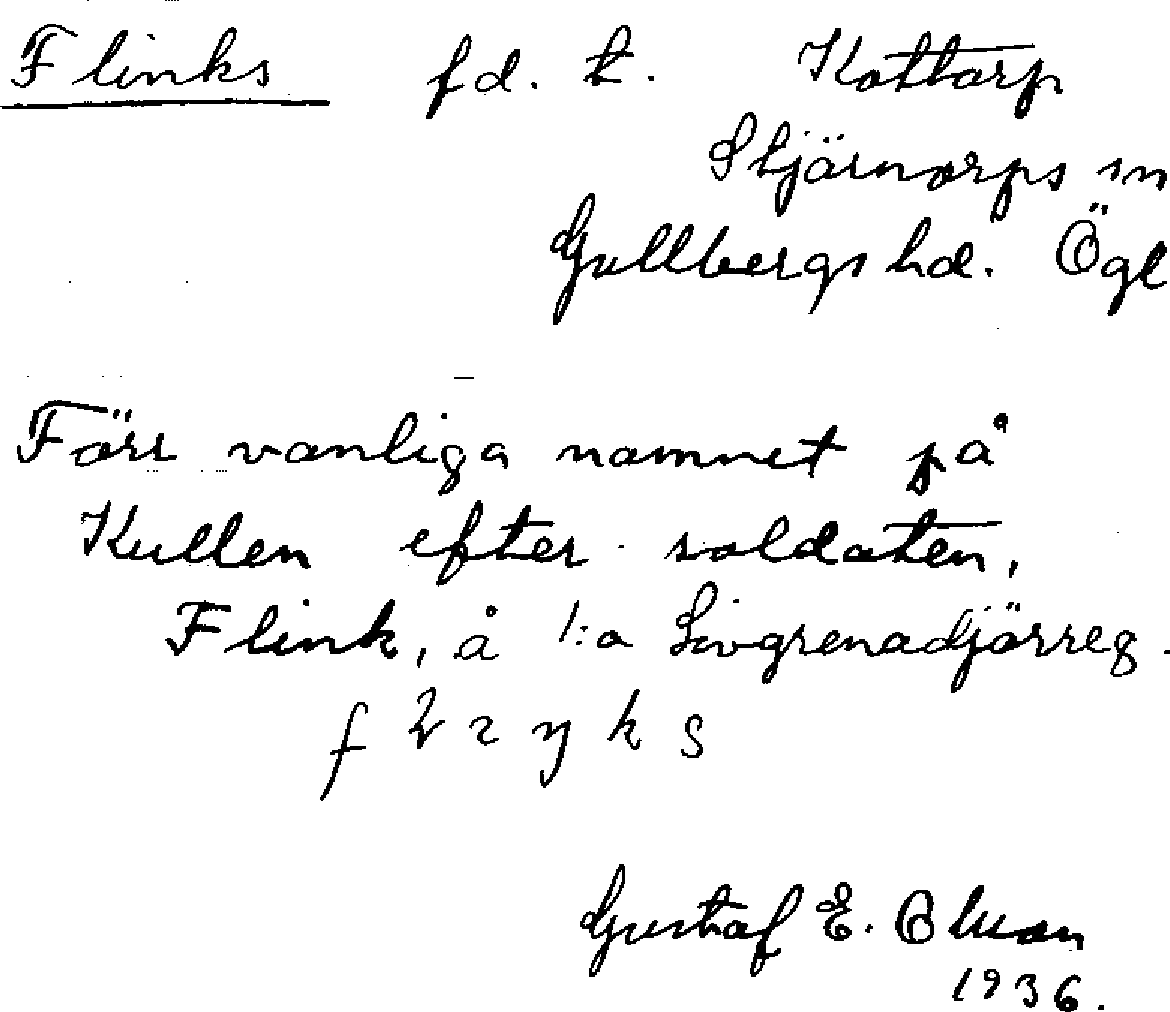 Flinks fd. t. Kottorp
Stjärnorps sn
Gullbergs hd. Ögl
Förr vanliga namnet på
Kullen efter soldaten,
Flink, å 1:a Livgrenadjärreg.
Gustaf E. Olsson
1936.